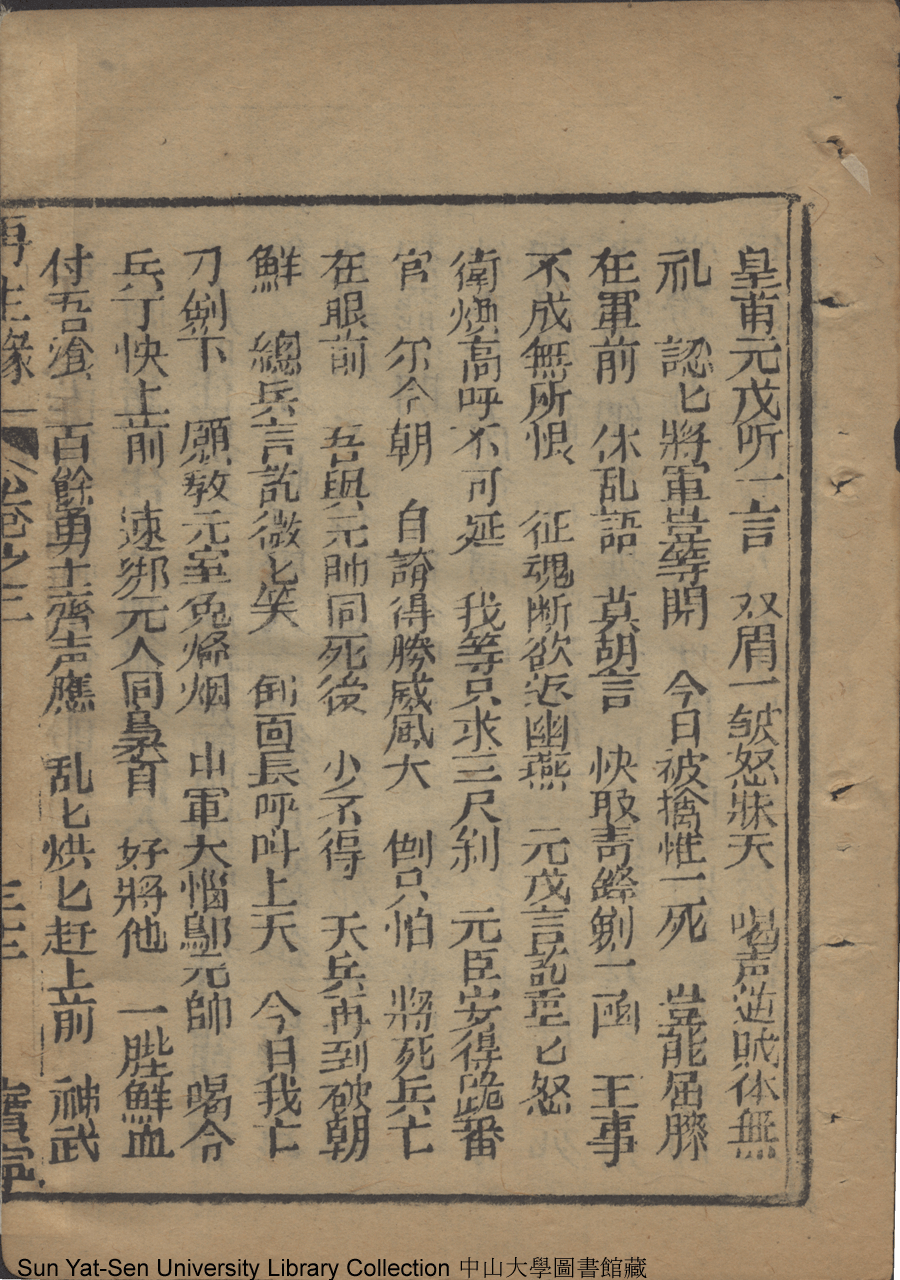 皇甫元戎听一言　双眉一皱怒冲天　喝声逆贼休無
礼　認匕將軍豈等閒　今日被擒惟一死　豈能屈膝
在軍前　休乱語　莫胡言　快取青鋒剿二凾　王事
不成無所恨　征魂断欲返幽燕　元戎言訖重匕怒
衛煥高呼不可延　我等只求三尺剎　元臣安得跪番
官　尔今朝　自誇得勝威風大　倒只怕　將死兵亡
在眼前　吾與元帥同死後　少不得　天兵再到破朝
鮮　總兵言訖微匕笑　倒面長呼叫上天　今日我亡
刀剿下　願教元室免烽烟　山軍大惱鄔元帥　喝令
兵丁快上前　速綁元人同梟首　好將他　一腔鮮血
付吾飡　百餘勇士齊声應　乱匕烘匕赶上前　神武
再生緣　卷之三
Sun Yat-Sen University Library Collection 中山大學圖書館藏